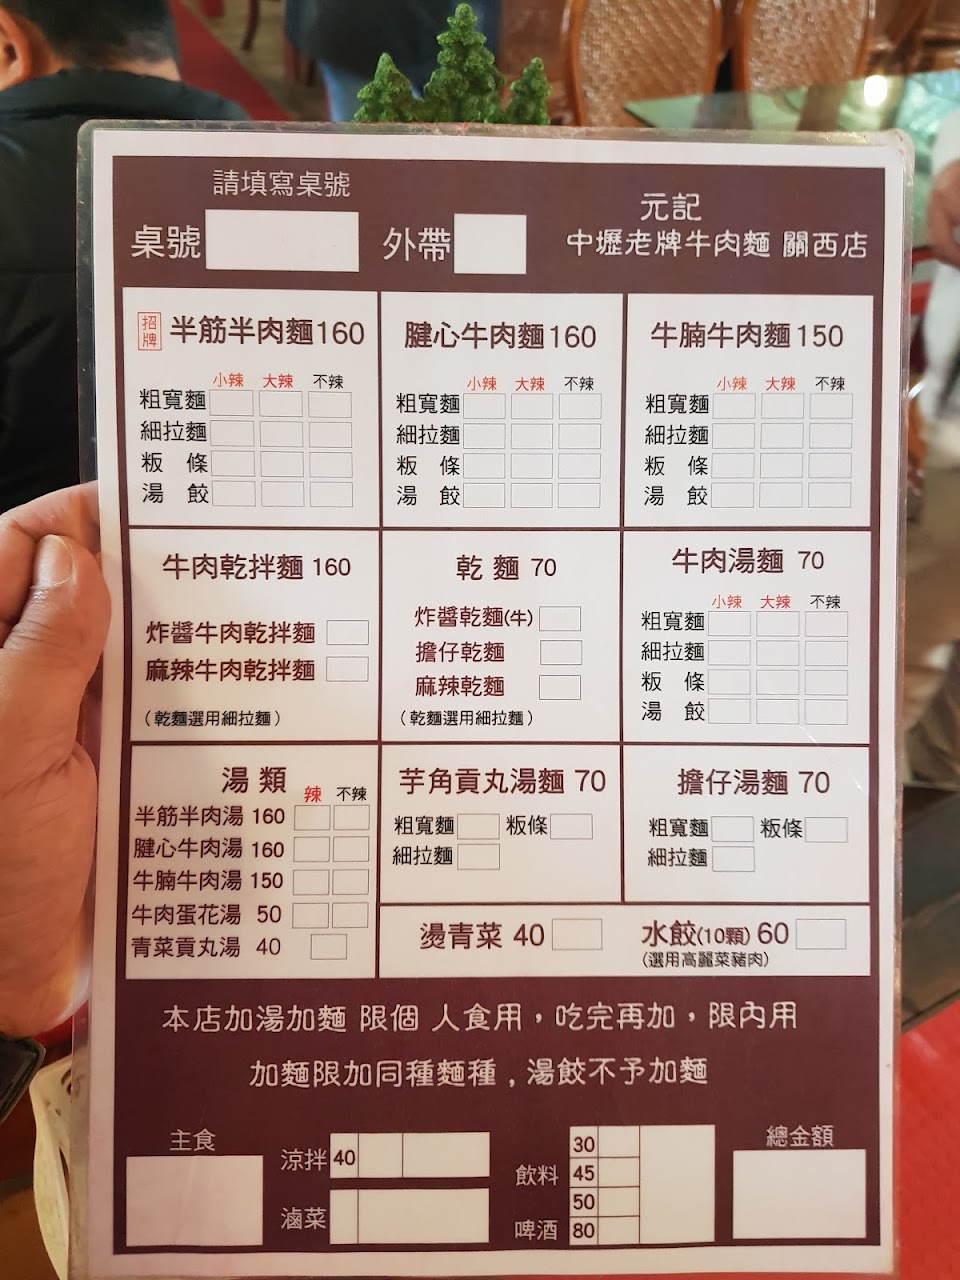 請填寫桌號
桌號 外帶
元記
中壢老牌牛肉麵 關西店
招牌 半筋半肉麵160
小辣 大辣 不辣
粗寬麵
細拉麵
粄 條
湯 餃
腱心牛肉麵160
小辣 大辣 不辣
粗寬麵
細拉麵
粄 條
湯 餃
牛腩牛肉麵150
小辣 大辣 不辣
粗寬麵
細拉麵
粄 條
湯 餃
牛肉乾拌麵 160
炸醬牛肉乾拌麵
麻辣牛肉乾拌麵
(乾麵選用細拉麵)
乾 麵 70
炸醬乾麵(牛)
擔仔乾麵
麻辣乾麵
(乾麵選用細拉麵)
牛肉湯麵 70
小辣 大辣 不辣
粗寬麵
細拉麵
粄 條
湯 餃
湯 類
辣 不辣
半筋半肉湯 160
腱心牛肉湯 160
牛腩牛肉湯 150
牛肉蛋花湯 50
青菜貢丸湯 40
芋角貢丸湯麵 70
粗寬麵 粄條
細拉麵
擔仔湯麵 70
粗寬麵 粄條
細拉麵
燙青菜 40
水餃(10顆) 60
(選用高麗菜豬肉)
本店加湯加麵 限個 人食用，吃完再加，限內用
加麵限加同種麵種 , 湯餃不予加麵
主食
涼拌 40
滷菜
飲料
啤酒
30
45
50
80
總金額